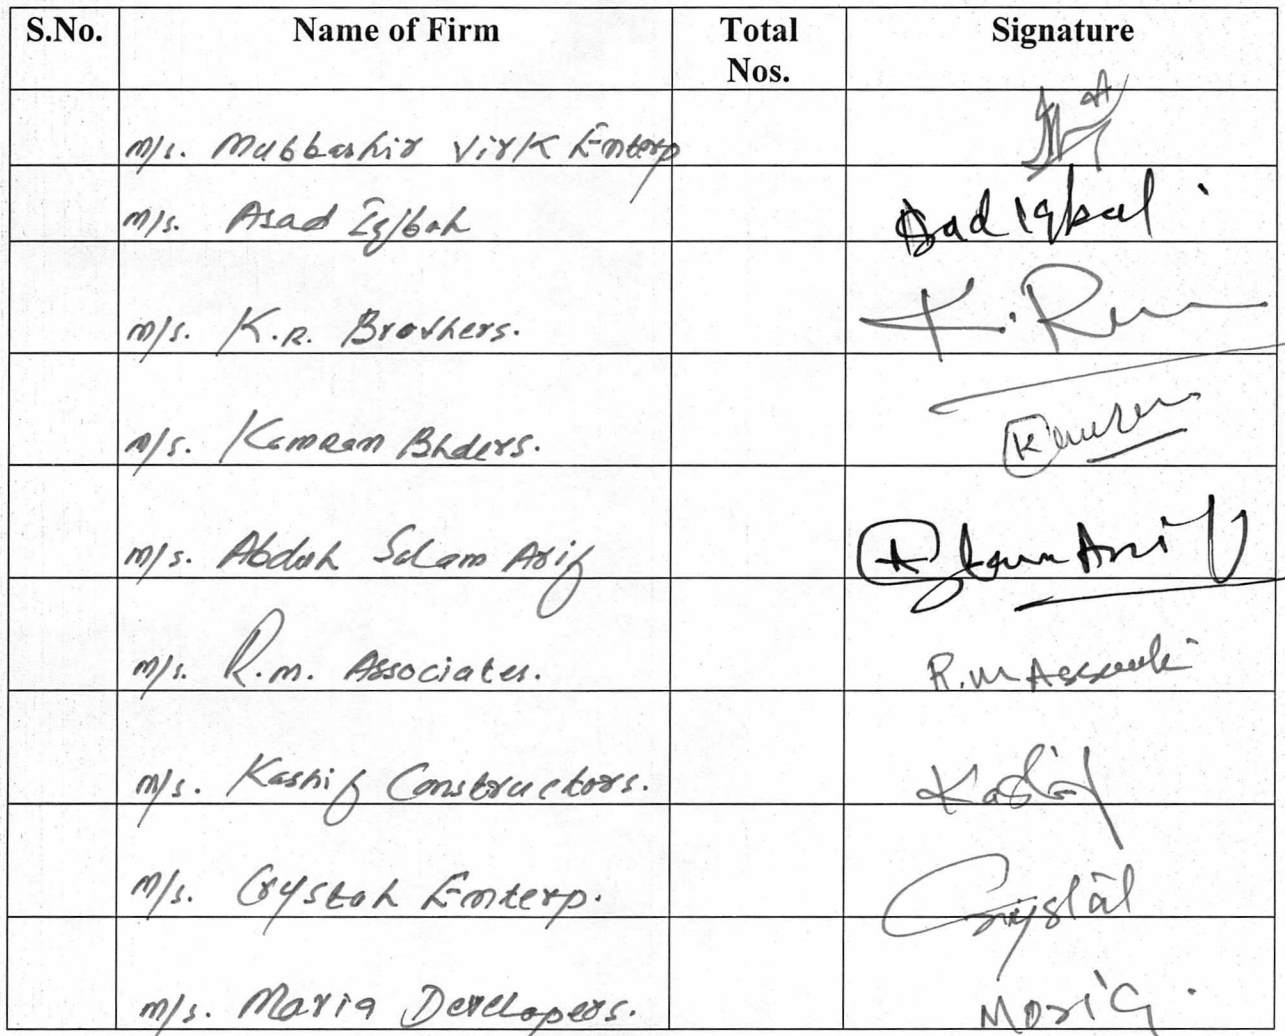 S.No. Name of Firm Total Nos. Signature
m/s. Mubbashir Virk Enterp
m/s. Asad Iqbal Asad Iqbal
m/s. K.R. Brothers. K.R
m/s. Kamran Blders. Kamran
m/s. Abdul Salam Arif Salam Arif
m/s. R.m. Associates. R.M Associate
m/s. Kashif Constructors. Kashif
m/s. Crystal Enterp. Crystal
m/s. Maria Developers. Maria